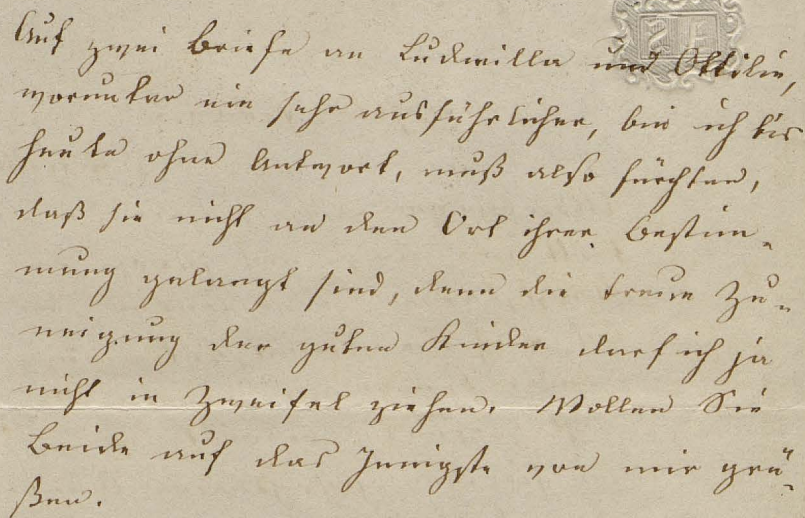 Auf zwei Briefe an Ludmilla und Ottilie,
worunter ein sehr ausführlicher, bin ich bis
heute ohne Antwort, muß also fürchten,
daß sie nicht an den Ort ihrer Bestim-
mung gelangt sind, denn die treue Zu-
neigung der guten Kinder darf ich ja
nicht in Zweifel ziehen. Wollen Sie
Beide auf das Innigste von mir grü-
ßen.